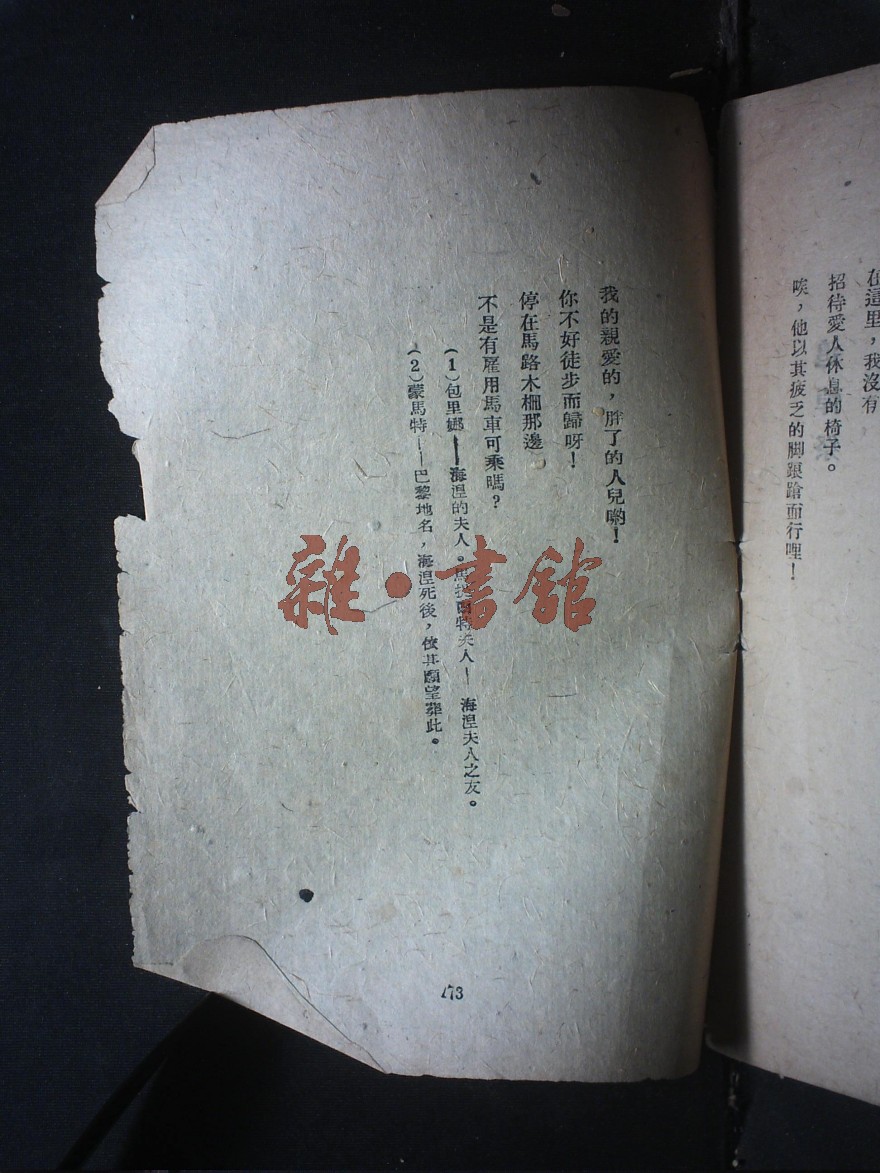 在這里，我沒有
招待愛人休息的椅子。
唉，他以其疲乏的脚踉蹌而行哩！
我的親愛的，胖了的人兒喲！
你不好徒步而歸呀！
停在馬路木柵那邊
不是有雇用馬車可乘嗎？
(1)包里娜——海涅的夫人。特夫人——海涅夫人之友。
(2)蒙馬特——巴黎地名，海涅死後，依其願望葬此。
173
雜·書館